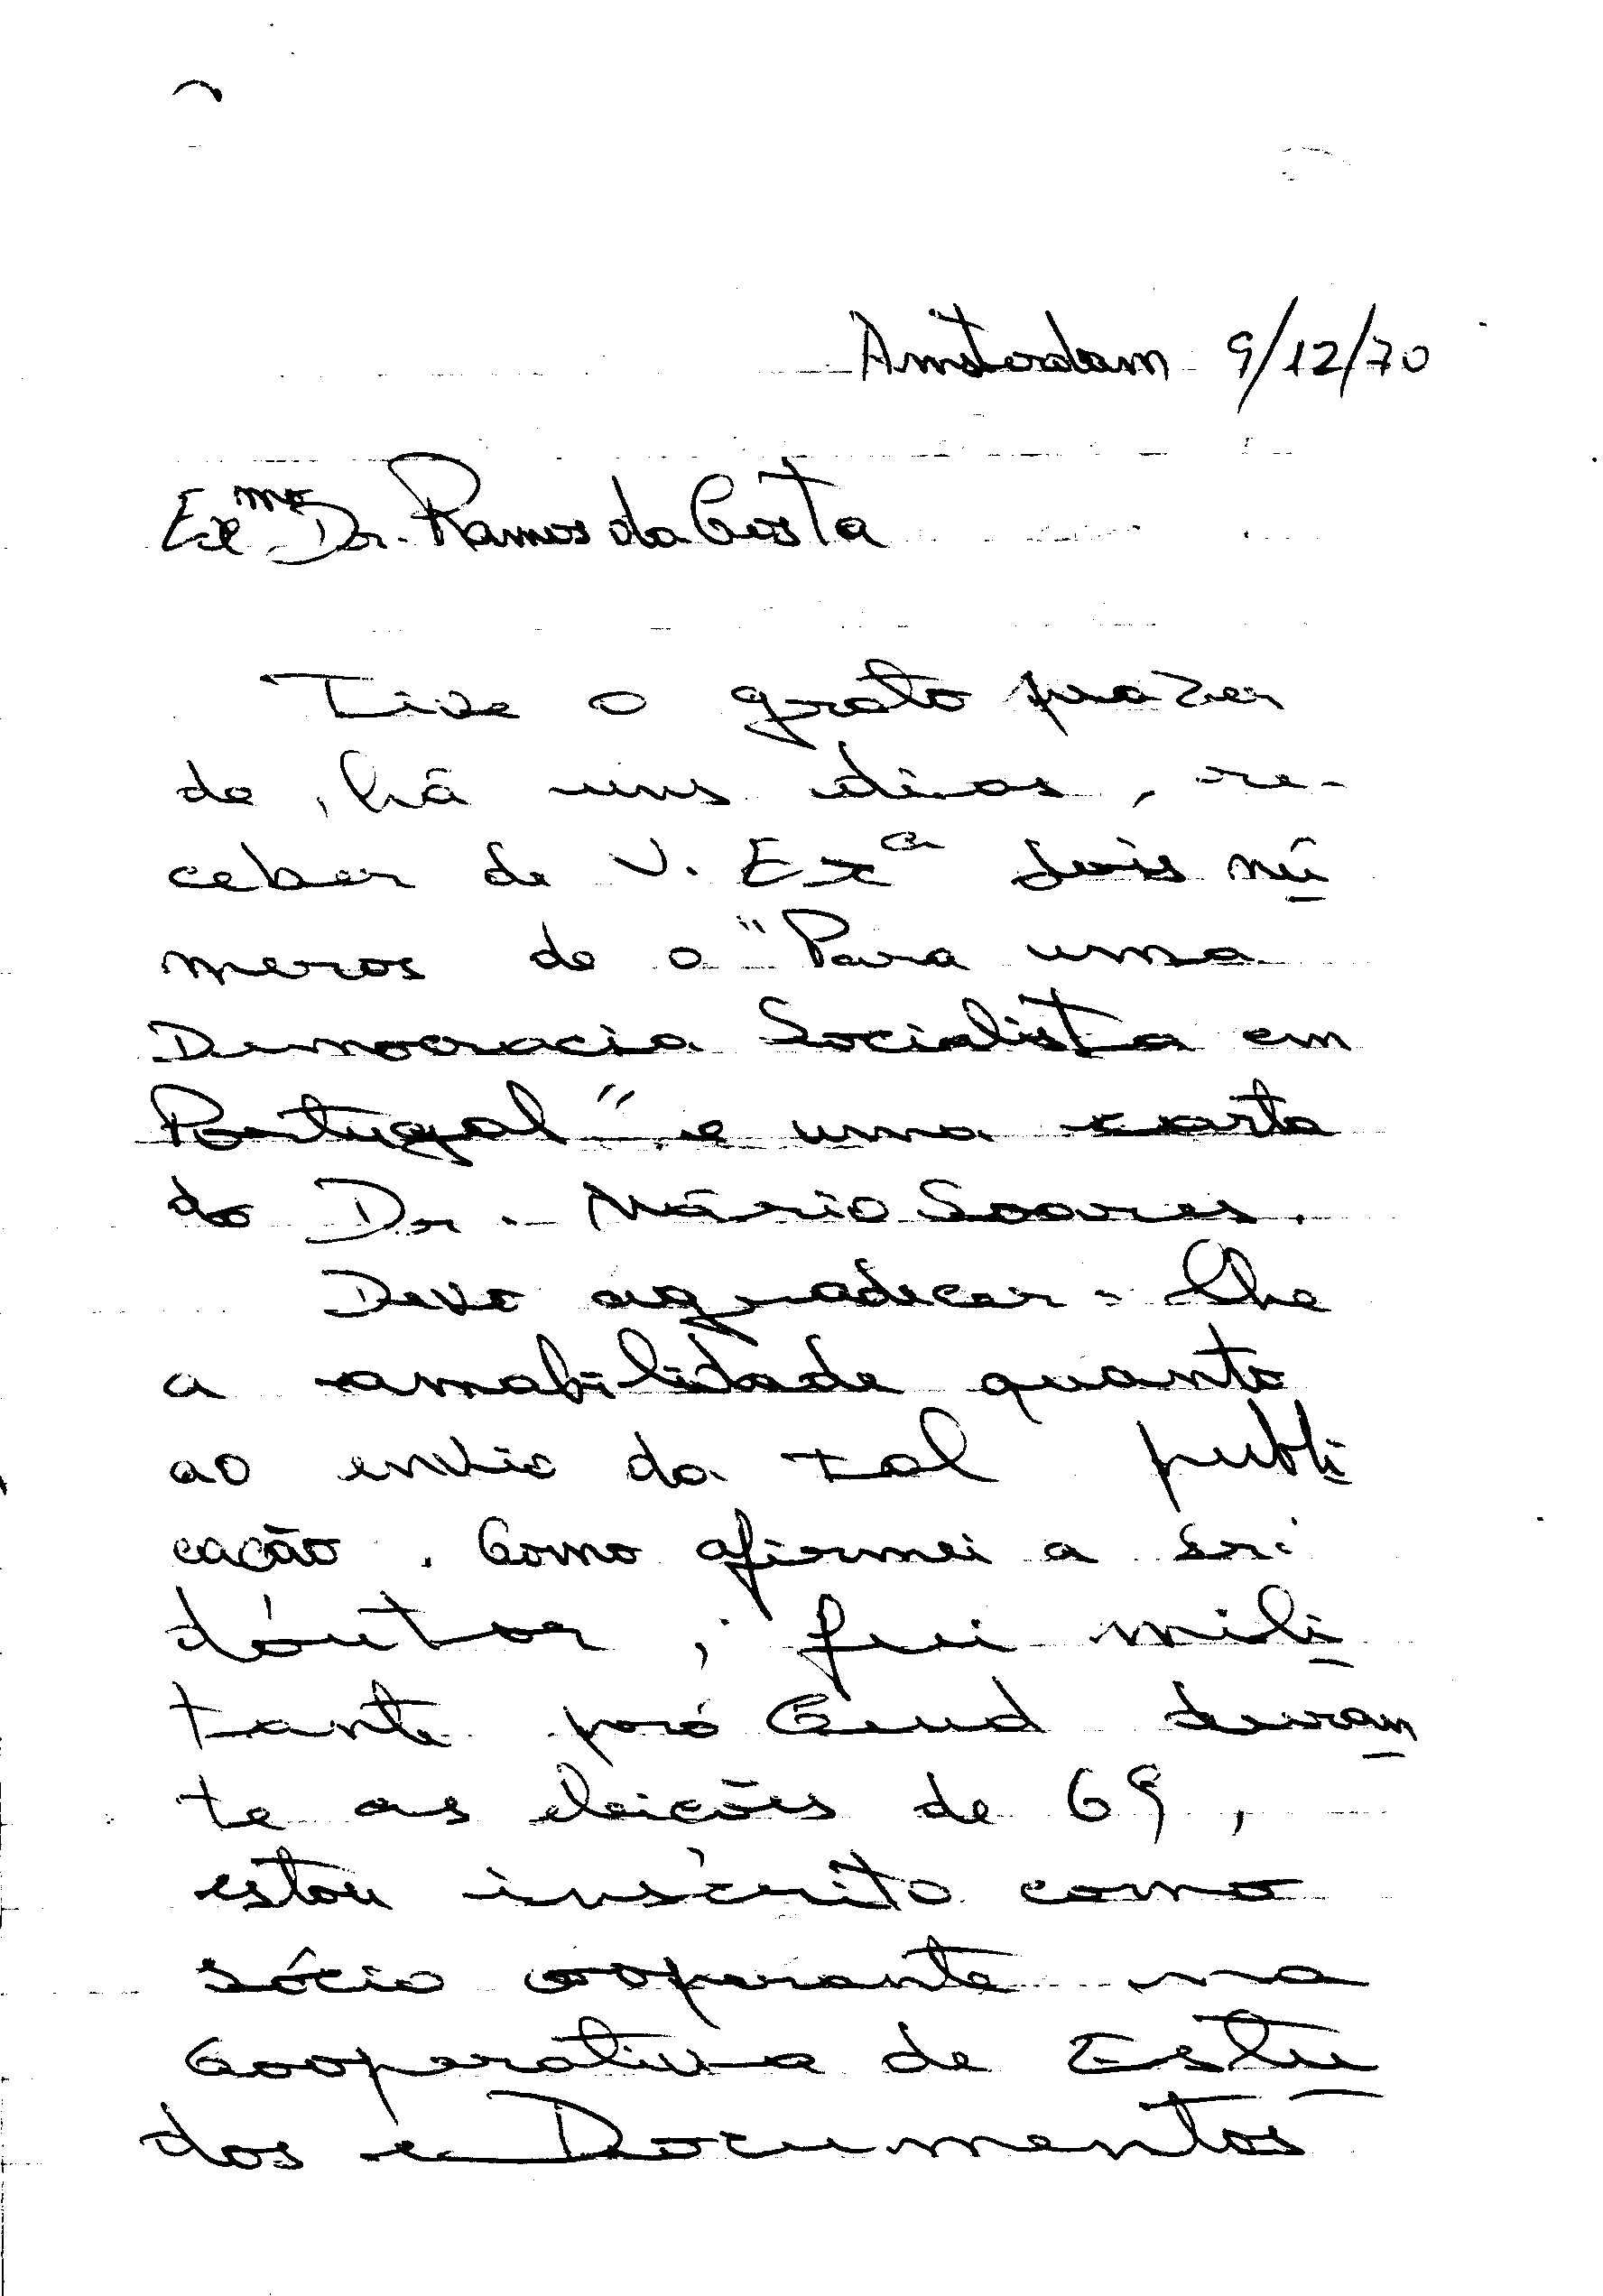 Amsterdam 9/12/70
Exmo Dr. Ramos da Costa
Tive o grato prazer
de, há uns dias, re-
ceber de V. Exa dois nú
meros de o "Para uma
Democracia Socialista em
Portugal" e uma carta
do Dr. Mário Soares.
Devo agradecer-lhe
a amabilidade quanto
ao envio da tal publi
cação. Como afirmei a Sr.
dóutor, fui mili
tante pró Ceud duran
te as eleições de 69,
estou inscrito como
sócio cooperante na
Cooperativa de Estu
dos e Documentos